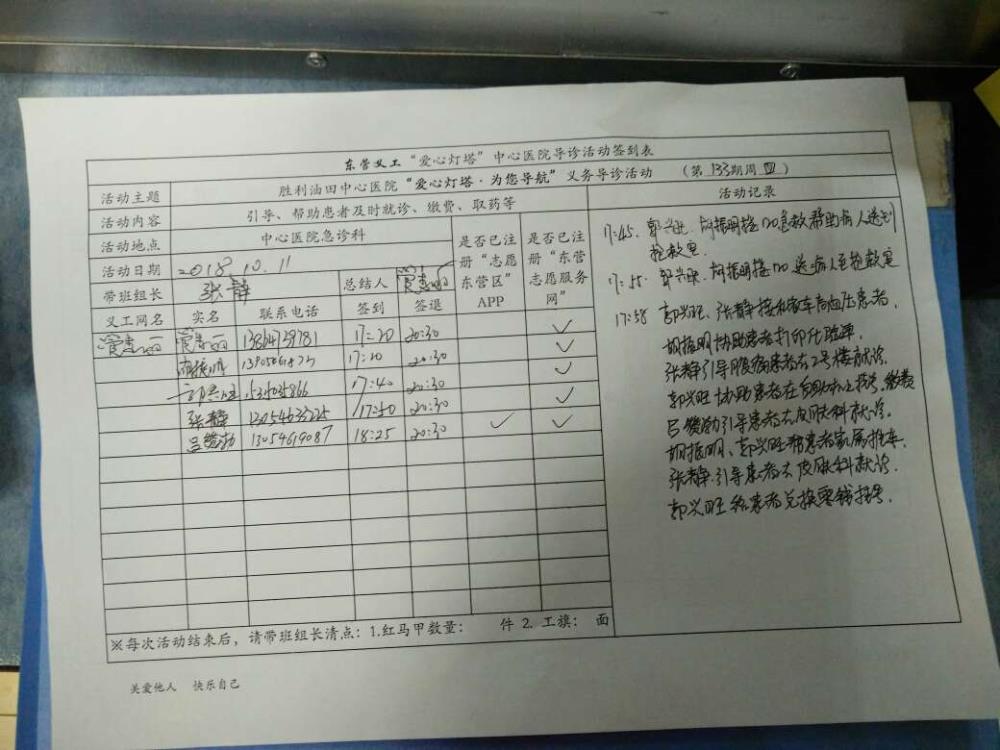 东营义工“爱心灯塔”中心医院导诊活动签到表
活动主题 胜利油田中心医院“爱心灯塔·为您导航”义务导诊活动 (第 133期周四)
活动内容 引导、帮助患者及时就诊、缴费、取药等 活动记录
活动地点 中心医院急诊科 是否已注册“志愿东营区”APP 是否已注册“东营志愿服务网”
活动日期 2018.10.11
带班组长 张静 总结人
义工网名 实名 联系电话 签到 签退
17:20 20:30 ✓
17:20 20:30 ✓
17:40 20:30 ✓
张静 20:30 ✓
吕 13054619087 18:25 20:30 ✓ ✓
17:45. 郭兴旺. 胡振明接120急救帮助病人送到
抢救室.
17:55 郭兴旺. 胡振明接120送病人至抢救室
17:58 郭兴旺、张静接私家车高血压患者.
胡振明协助患者打印化验单.
张静引导腹痛患者去2号楼就诊.
郭兴旺协助患者在自助机上挂号.缴费
引导患者去皮肤科就诊.
胡振明、郭兴旺帮患者家属推车.
张静引导患者去皮肤科就诊.
郭兴旺给患者兑换零钱挂号.
※每次活动结束后，请带班组长清点：1.红马甲数量： 件 2. 工旗： 面
关爱他人 快乐自己